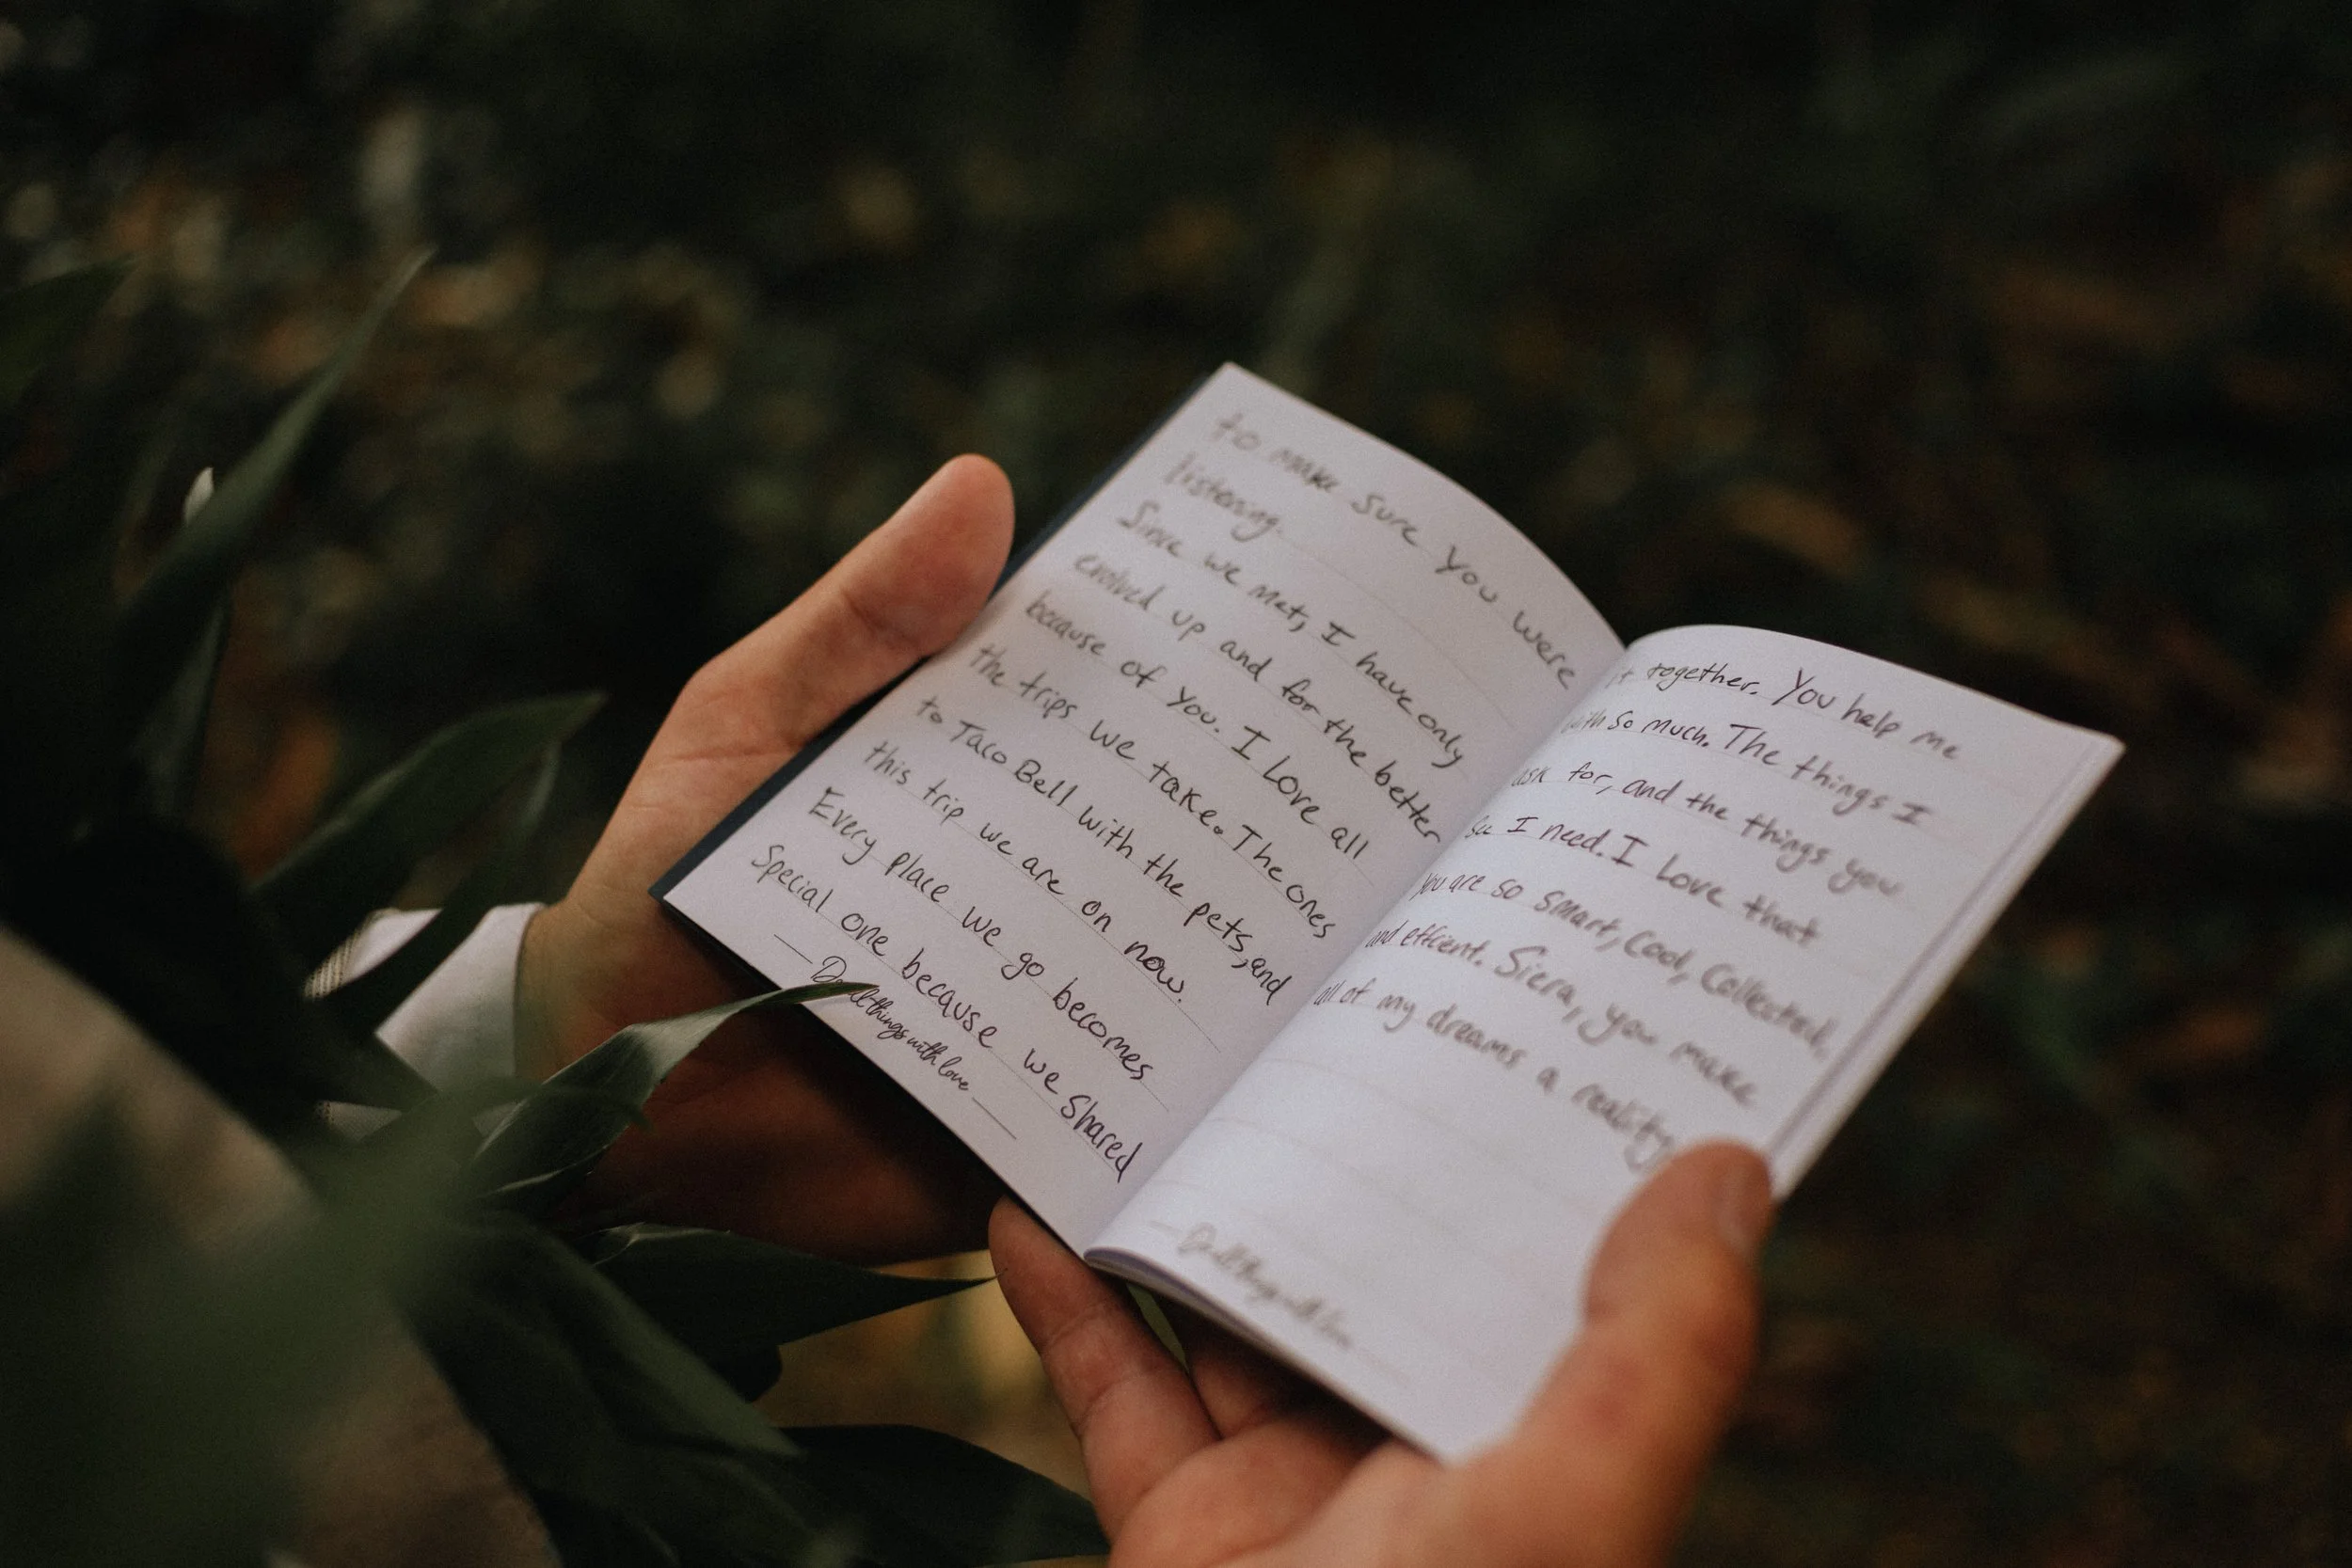 to make sure you were
listening.
Since we met, I have only
evolved up and for the better
because of you. I love all
the trips we take. The ones
to Taco Bell with the pets, and
this trip we are on now.
Every place we go becomes
Special one because we shared
Do all things with love
it together. You help me
with so much. The things I
ask for, and the things you
see I need. I love that
you are so smart, Cool, Collected,
and effcient. Siera, you make
all of my dreams a reality
Do all things with love